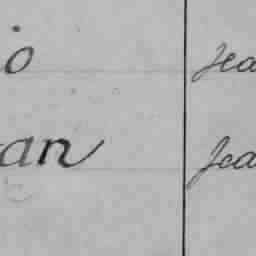 io Jea
an Jea